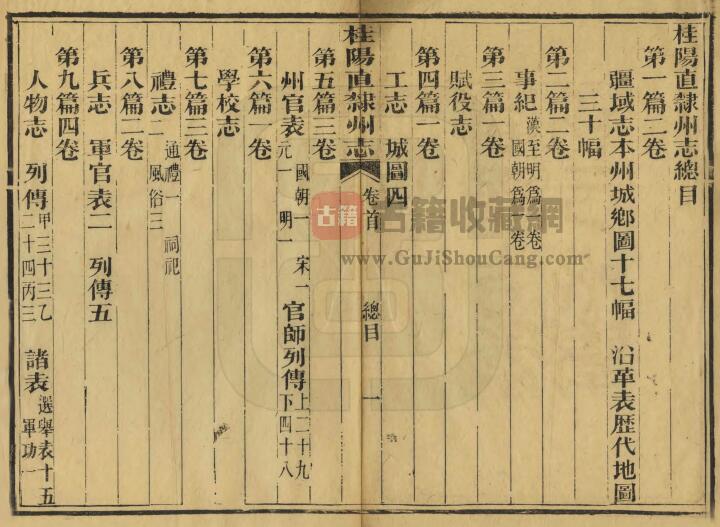 桂陽直隸州志總目
第一篇二卷
疆域志本州城鄉圖十七幅 沿革表歷代地圖
三十幅
第二篇二卷
事紀 漢至明爲一卷 國朝爲一卷
第三篇一卷
賦役志
第四篇一卷
工志 城圖四
桂陽直隸州志 卷首 總目 一
第五篇三卷
州官表 國朝一 宋一 元一 明一 官師列傳 上二十九 下四十八
第六篇一卷
學校志
第七篇三卷
禮志一 通禮一 祠祀 風俗三
第八篇二卷
兵志 軍官表二 列傳五
第九篇四卷
人物志 列傳 甲三十三乙 二十四丙三 諸表 選舉表十五 軍功一
古籍
古籍收藏網
www.GuJiShouCang.com